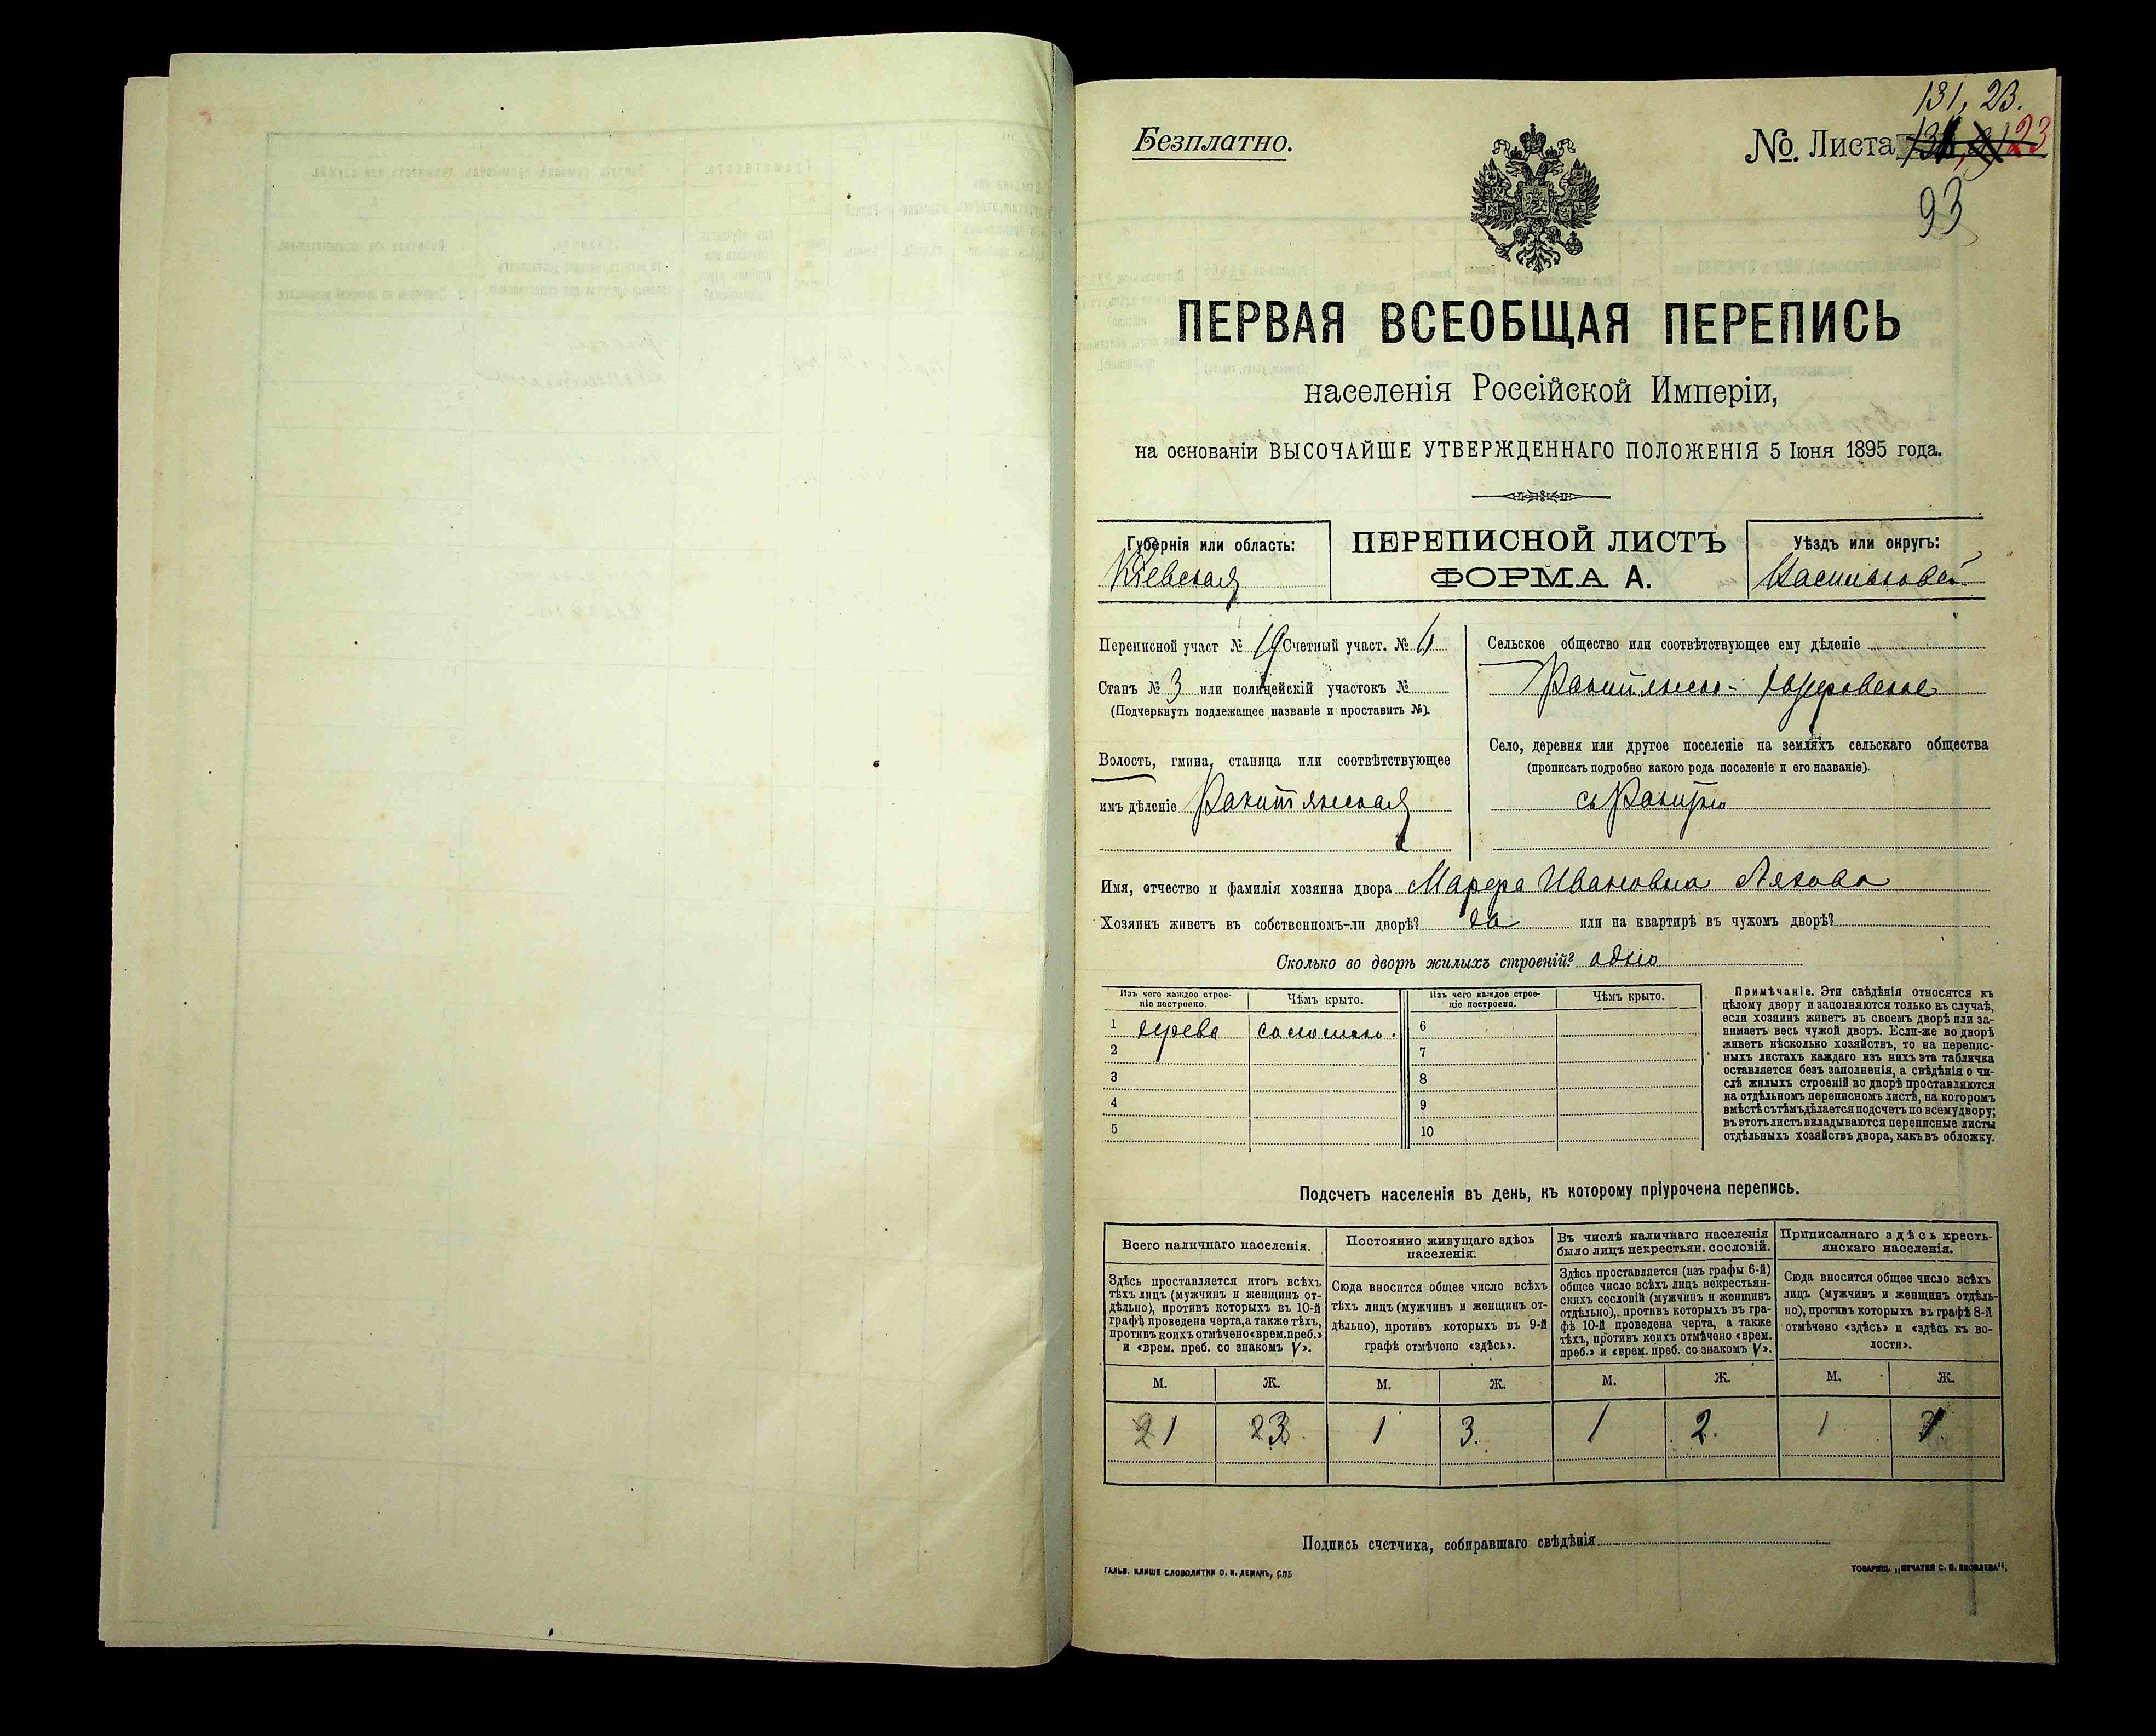 131, 23.
Безплатно.
№ Листа 123
93
ПЕРВАЯ ВСЕОБЩАЯ ПЕРЕПИСЬ
населенія Россійской Имперіи,
на основаніи ВЫСОЧАЙШЕ УТВЕРЖДЕННАГО ПОЛОЖЕНІЯ 5 Іюня 1895 года.
Губернія или область:
Кіевская
ПЕРЕПИСНОЙ ЛИСТЪ
ФОРМА А.
Уѣздъ или округъ:
Переписной участ № 19 Счетный участ. №
Станъ № 3 или полицейскій участокъ №
(Подчеркнуть подлежащее названіе и проставить №).
Волость, гмина, станица или соотвѣтствующее
имъ дѣленіе Ракитянская
Сельское общество или соотвѣтствующее ему дѣленіе
Село, деревня или другое поселеніе на земляхъ сельскаго общества
(прописать подробно какого рода поселеніе и его названіе).
с. Ракитно
Имя, отчество и фамилія хозяина двора Ивановна
Хозяинъ живетъ въ собственномъ-ли дворѣ? да или на квартирѣ въ чужомъ дворѣ?
Сколько во дворѣ жилыхъ строеній? одно
Изъ чего каждое строе-
ніе построено.
Чѣмъ крыто.
Изъ чего каждое строе-
ніе построено.
Чѣмъ крыто.
1 дерева соломою. 6
2 7
3 8
4 9
5 10
Примѣчаніе. Эти свѣдѣнія относятся къ
цѣлому двору и заполняются только въ случаѣ,
если хозяинъ живетъ въ своемъ дворѣ или за-
нимаетъ весь чужой дворъ. Если-же во дворѣ
живетъ нѣсколько хозяйствъ, то на перепис-
ныхъ листахъ каждаго изъ нихъ эта табличка
оставляется безъ заполненія, а свѣдѣнія о чи-
слѣ жилыхъ строеній во дворѣ проставляются
на отдѣльномъ переписномъ листѣ, на которомъ
вмѣстѣ съ тѣмъ дѣлается подсчетъ по всему двору;
въ этотъ листъ вкладываются переписные листы
отдѣльныхъ хозяйствъ двора, какъ въ обложку.
Подсчетъ населенія въ день, къ которому пріурочена перепись.
Всего наличнаго населенія.
Здѣсь проставляется итогъ всѣхъ
тѣхъ лицъ (мужчинъ и женщинъ от-
дѣльно), противъ которыхъ въ 10-й
графѣ проведена черта, а также тѣхъ,
противъ коихъ отмѣчено «врем. преб.»
и «врем. преб. со знакомъ V».
Постоянно живущаго здѣсь
населенія.
Сюда вносится общее число всѣхъ
тѣхъ лицъ (мужчинъ и женщинъ от-
дѣльно), противъ которыхъ въ 9-й
графѣ отмѣчено «здѣсь».
Въ числѣ наличнаго населенія
было лицъ некрестьян. сословій.
Здѣсь проставляется (изъ графы 6-й)
общее число всѣхъ лицъ некрестьян-
скихъ сословій (мужчинъ и женщинъ
отдѣльно), противъ которыхъ въ гра-
фѣ 10-й проведена черта, а также
тѣхъ, противъ коихъ отмѣчено «врем.
преб.» и «врем. преб. со знакомъ V».
Приписаннаго здѣсь кресть-
янскаго населенія.
Сюда вносится общее число всѣхъ
лицъ (мужчинъ и женщинъ отдѣль-
но), противъ которыхъ въ графѣ 8-й
отмѣчено «здѣсь» и «здѣсь къ во-
лости».
М. Ж. М. Ж. М. Ж. М. Ж.
1 3. 1 3. 1 2. 1
Подпись счетчика, собиравшаго свѣдѣнія
ГАЛЬВ. КЛИШЕ СЛОВОЛИТНИ О. И. ЛЕМАНЪ, СПБ
ТОВАРИЩ. „ПЕЧАТНЯ С. П. ЯКОВЛЕВА".